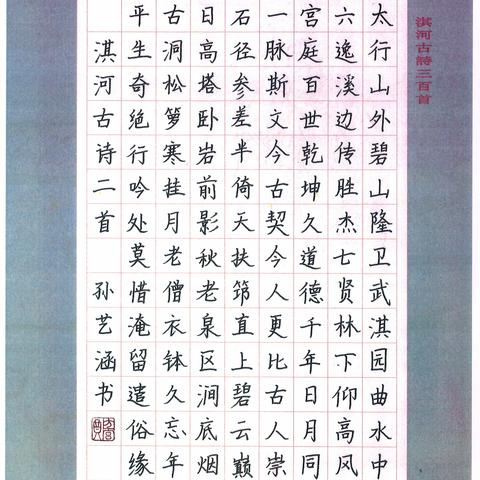 淇河古詩三百首
太行山外碧山隆卫武淇园曲水中
六逸溪边传胜杰七贤林下仰高风
宫庭百世乾坤久道德千年日月同
一脉斯文今古契今人更比古人崇
石径参差半倚天扶筇直上碧云巅
日高塔卧岩前影秋老泉区涧底烟
古洞松箩寒挂月老僧衣钵久忘年
平生奇绝行吟处莫惜淹留遣俗缘
淇河古诗二首 孙艺涵书